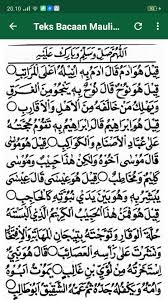 20.10
Teks Bacaan Mauli...
اَللّٰهُمَّ صَلِّ وَسَلِّمْ وَبَارِكْ عَلَيْهِ
قِيْلَ هُوَ اٰدَمُ قَالَ اٰدَمُ بِهِ اُنِيْلُهُ اَعْلَى الْمَرَاتِبِ
قِيْلَ هُوَ نُوْحٌ قَالَ نُوْحٌ بِهِ يَنْجُوْ مِنَ الْغَرَقِ
وَيَهْلِكُ مَنْ خَالَفَهُ مِنَ الْاَهْلِ وَالْاَقَارِبِ
قِيْلَ هُوَ اِبْرَاهِيْمُ قَالَ اِبْرَاهِيْمُ بِهِ تَقُوْمُ حُجَّتُهُ
عَلَى عُبَّادِ الْاَصْنَامِ وَالْكَوَاكِبِ قِيْلَ هُوَ مُوْسَى
قَالَ مُوْسَى اَخُوْهُ وَلٰكِنْ هٰذَا حَبِيْبٌ وَمُوْسَى
كَلِيْمٌ وَمُخَاطَبٌ قِيْلَ هُوَ عِيْسَى قَالَ عِيْسَى
يُبَشِّرُ بِهِ وَهُوَ بَيْنَ يَدَيْ نُبُوَّتِهِ كَالْحَاجِبِ
قِيْلَ فَمَنْ هٰذَا الْحَبِيْبُ الْكَرِيْمُ الَّذِيْ اَلْبَسْتَهُ
حُلَّةَ الْوَقَارِ وَتَوَّجْتَهُ بِتِيْجَانِ الْمَهَابَةِ وَالْاِفْتِخَارِ
وَنَشَرْتَ عَلَى رَأْسِهِ الْعَصَائِبَ قَالَ هُوَ نَبِيٌّ
اِسْتَخَرْتُهُ مِنْ لُؤَيِّ بْنِ غَالِبٍ يَمُوْتُ اَبُوْهُ
وَاُمُّهُ وَيَكْفُلُهُ جَدُّهُ ثُمَّ عَمُّهُ الشَّقِيْقُ اَبُوْ طَالِبٍ